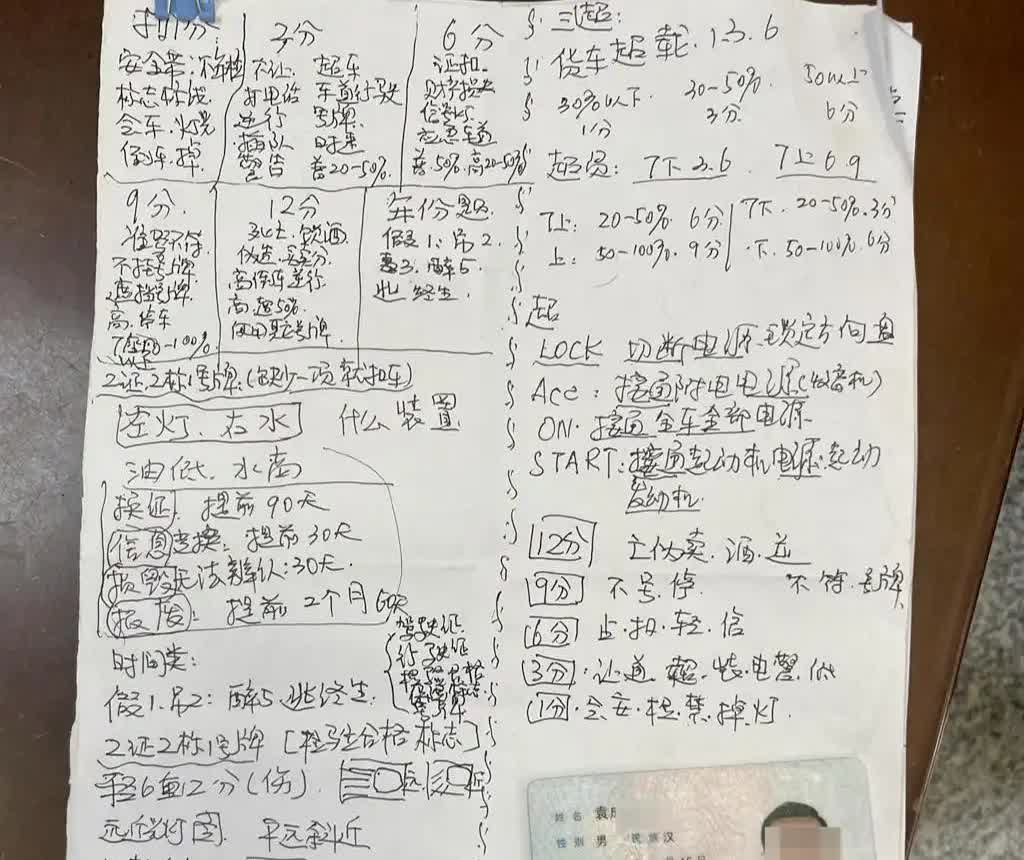 扣1分
安全带:
标志标线
会车.灯光
倒车.掉
3分
不让 超车
打电话 车道行驶
逆行 号牌
插队
警告 普20-50%.
6分
证扣
财产损失
信号灯
应急车道
普.50%.高20-50%
9分.
准驾不符
不挂号牌
遮挡号牌
高.停车
7座50-100%
以上
12分
饮酒
伪造.买分
高倒车逆行
高.超50%
使用号牌
年份题
假1.吊2.
3.醉5.
逃 终生.
2证.2标1号牌:(缺少一项就扣车)
左灯.右水 什么装置
油低.水高
换证: 提前90天
信息变换: 提前30天
损毁无法辨认:30天.
报废: 提前2个月 60天
时间类:
驾驶证
行驶证
号牌
假1.吊2: 醉5.逃终生.
2证2标1号牌 [检验合格标志]
轻6重12分(伤) 远 近
远近灯图. 平远斜近
三超:
货车超载.1.3.6
30%以下
1分
30-50%
3分
50以上
6分
超员: 7下3.6 7上6.9
7上: 20-50% 6分
上: 50-100%. 9分
7下. 20-50%.3分
下. 50-100%.6分
超
LOCK 切断电源.锁定方向盘
Acc: 接通附电电源(收音机)
ON. 接通全车全部电源
START:接通起动机电源.起动
发动机.
12分 亡伪卖.酒.逆
9分 不号停. 不符.号牌
6分 占.扣.轻.信
3分.让道 超.装.电警.低
1分.会安.检.禁.掉灯.
姓名 袁
性别 男 民族 汉